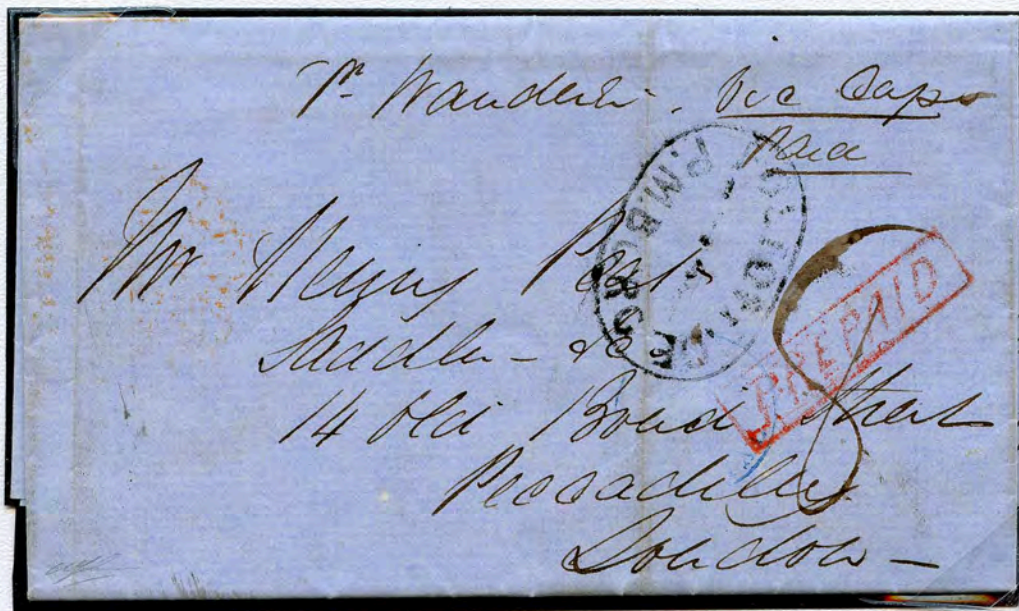 Pr Wanderer. Via Cape
Paid
Mr Henry Peat
Saddler - &c
14 Old Bond Street
Piccadilly
London -
PREPAID
P.M.BURG